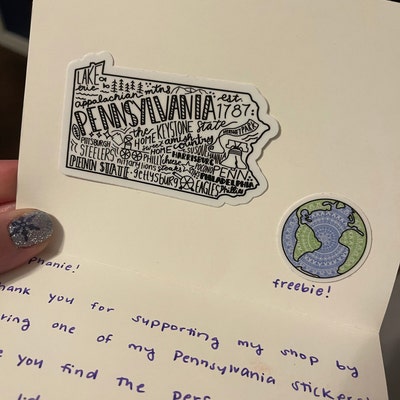 LAKE
erie
mtns
appalachian
est.
PENNSYLVANIA 1787:
the KEYSTONE State
PITTSBURGH HOME amish
STEELERS country
HARRISBURG
PHILLY cheese
steaks
PENN
PHILADELPHIA
PENN STATE gettysburg EAGLES Phillies
freebie!
phanie!
hank you for supporting my shop by
ring one of my Pennsylvania stickers!
you find the perf